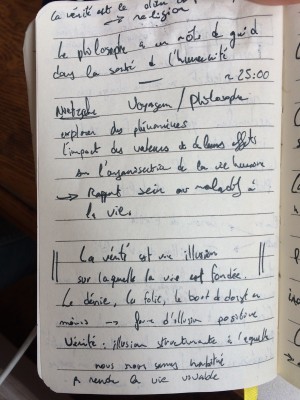 la vérité est le dieu
→ religion
Le philosophe a un rôle de guid
dans la santé de l'humanité
~ 25:00
Nietzsche Voyageur / Philosophe
explorer des phénomènes
l'impact des valeurs et de leurs effets
sur l'organisation de la vie humaine
→ Rapport sain ou maladif à
la vie.
La vérité est une illusion
sur laquelle la vie est fondée.
Le dénie, la folie, le
→ forme d'illusion positive
Vérité : illusion structurante à laquelle
nous nous sommes habitué
rendre la vie vivable